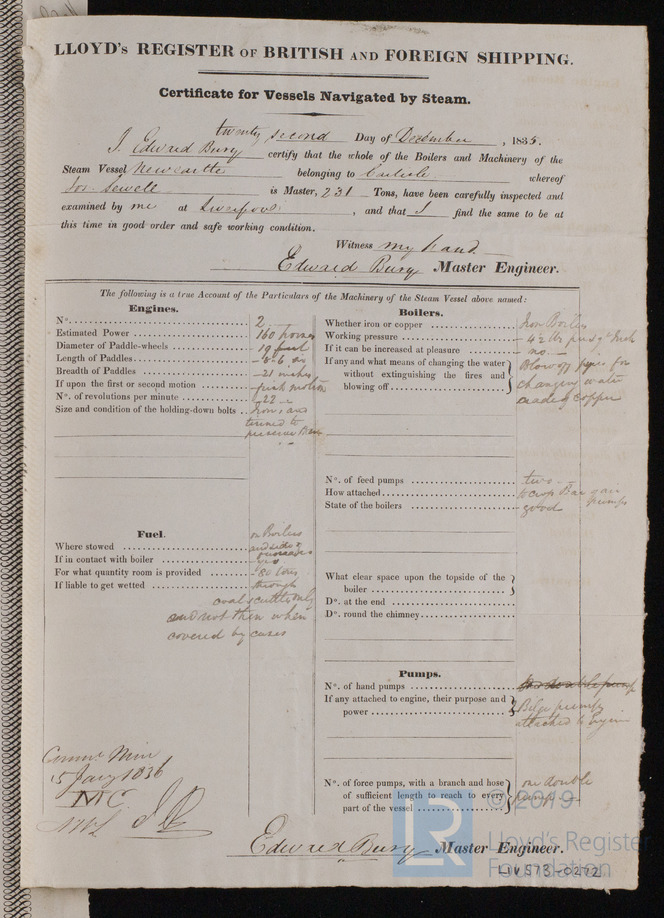 LLOYD's REGISTER OF BRITISH AND FOREIGN SHIPPING.
Certificate for Vessels Navigated by Steam.
twenty second Day of December , 1835.
I, Edward Bury certify that the whole of the Boilers and Machinery of the
Steam Vessel Newcastle belonging to Carlisle whereof
Jos. Sewell is Master, 231 Tons, have been carefully inspected and
examined by me at Liverpool , and that I find the same to be at
this time in good order and safe working condition.
Witness my hand
Edward Bury Master Engineer.
The following is a true Account of the Particulars of the Machinery of the Steam Vessel above named:
Engines.
No. 2
Estimated Power 160 horses
Diameter of Paddle-wheels 19 feet
Length of Paddles 8-6
Breadth of Paddles 21 inches
If upon the first or second motion first motion
No. of revolutions per minute 22
Size and condition of the holding-down bolts Iron, and
tinned to
preserve
Fuel.
on Boilers
Where stowed and sides
If in contact with boiler
For what quantity room is provided 80 tons
If liable to get wetted through
coal scuttle only
and not then when
covered by cases
Boilers.
Whether iron or copper Iron Boilers
Working pressure 4½ lbs per sqr Inch
If it can be increased at pleasure no
If any and what means of changing the water Blow off pipe for
without extinguishing the fires and changing water
blowing off made of copper
No. of feed pumps two
How attached to cross Bar air pumps
State of the boilers good
What clear space upon the topside of the
boiler
Do. at the end
Do. round the chimney
Pumps.
No. of hand pumps
If any attached to engine, their purpose and Bilge pumps
power attached to engine
No. of force pumps, with a branch and hose one double
of sufficient length to reach to every pump
part of the vessel
Comme Min
15 Jany 1836
Edward Bury Master Engineer.
© 2019
LR
Lloyd's Register
Foundation
LIV573-0272